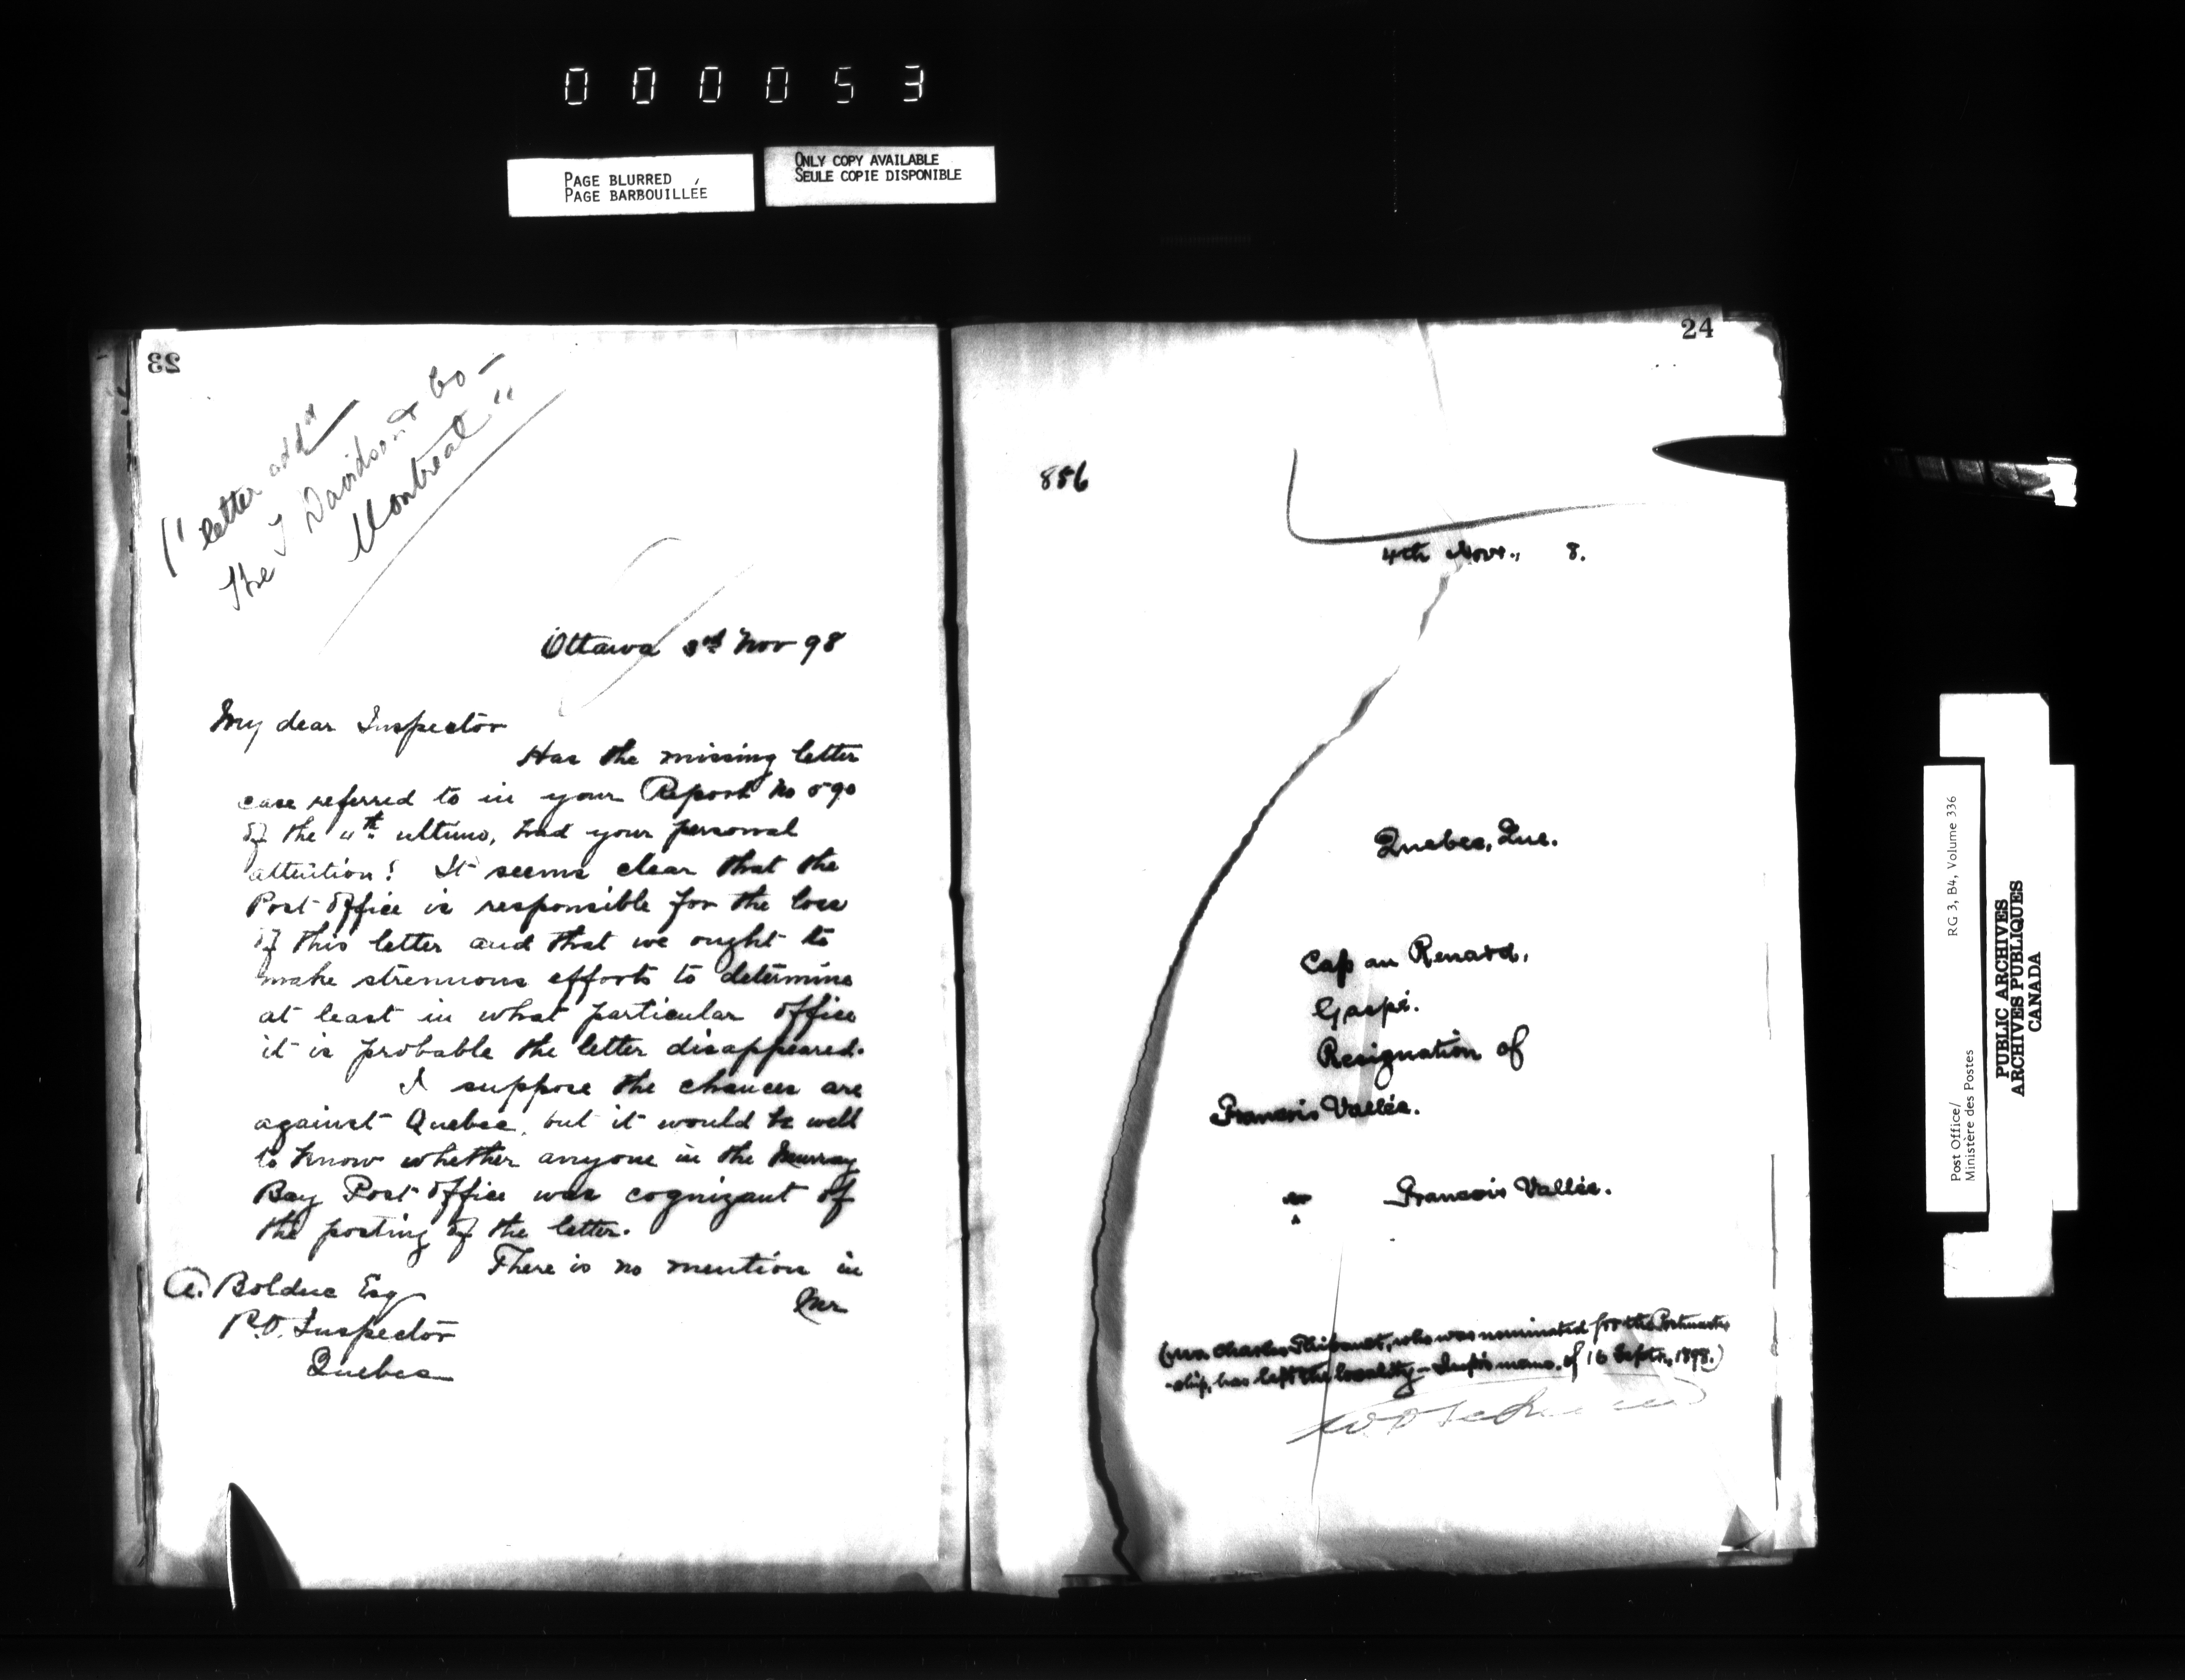 000053
PAGE BLURRED
PAGE BARBOUILLÉE
ONLY COPY AVAILABLE
SEULE COPIE DISPONIBLE
23
("letter addd
The J Davidson & Co —
Montreal"
Ottawa 3rd Nov 98
My dear Inspector
Has the missing letter
case referred to in your Report No 590
of the 4th ultimo, had your personal
attention? It seems clear that the
Post Office is responsible for the loss
of this letter and that we ought to
make strenuous efforts to determine
at least in what particular office
it is probable the letter disappeared.
I suppose the chances are
against Quebec, but it would be well
to know whether anyone in the Murray
Bay Post Office was cognizant of
the posting of the letter.
There is no mention in
Mr
A. Bolduc Esq
P.O. Inspector
Quebec
24
856
4th Novr., 8.
Quebec, Que.
Cap au Renard,
Gaspé.
Resignation of
Francois Vallée.
Francois Vallée.
(Mr. Charles Thibault, who was nominated for the Postmaster
-ship, has left the locality – Insp's memo. of 16 Septr., 1898.)
Post Office/
Ministère des Postes
RG 3, B4, Volume 336
PUBLIC ARCHIVES
ARCHIVES PUBLIQUES
CANADA